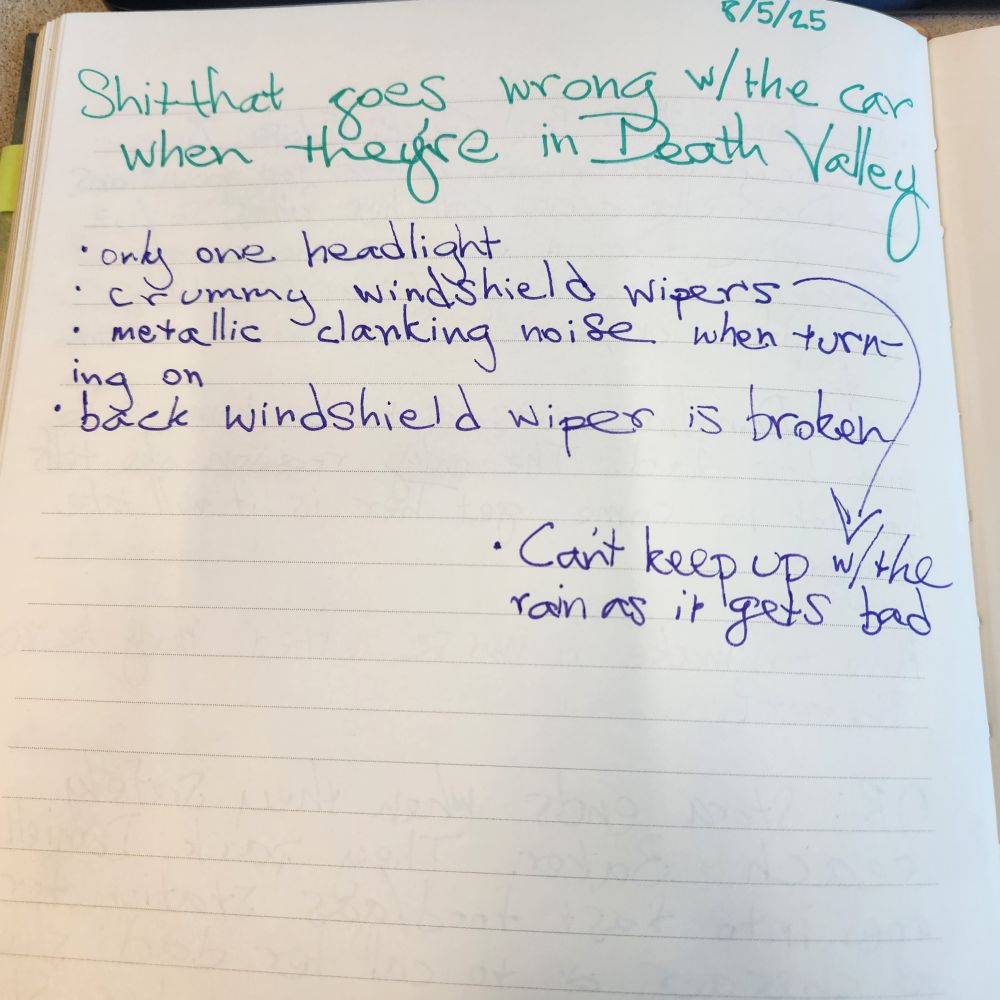 8/5/25
Shit that goes wrong w/the car
when they're in Death Valley
• only one headlight
• crummy windshield wipers
• metallic clanking noise when turn-
ing on
• back windshield wiper is broken
• Can't keep up w/the
rain as it gets bad